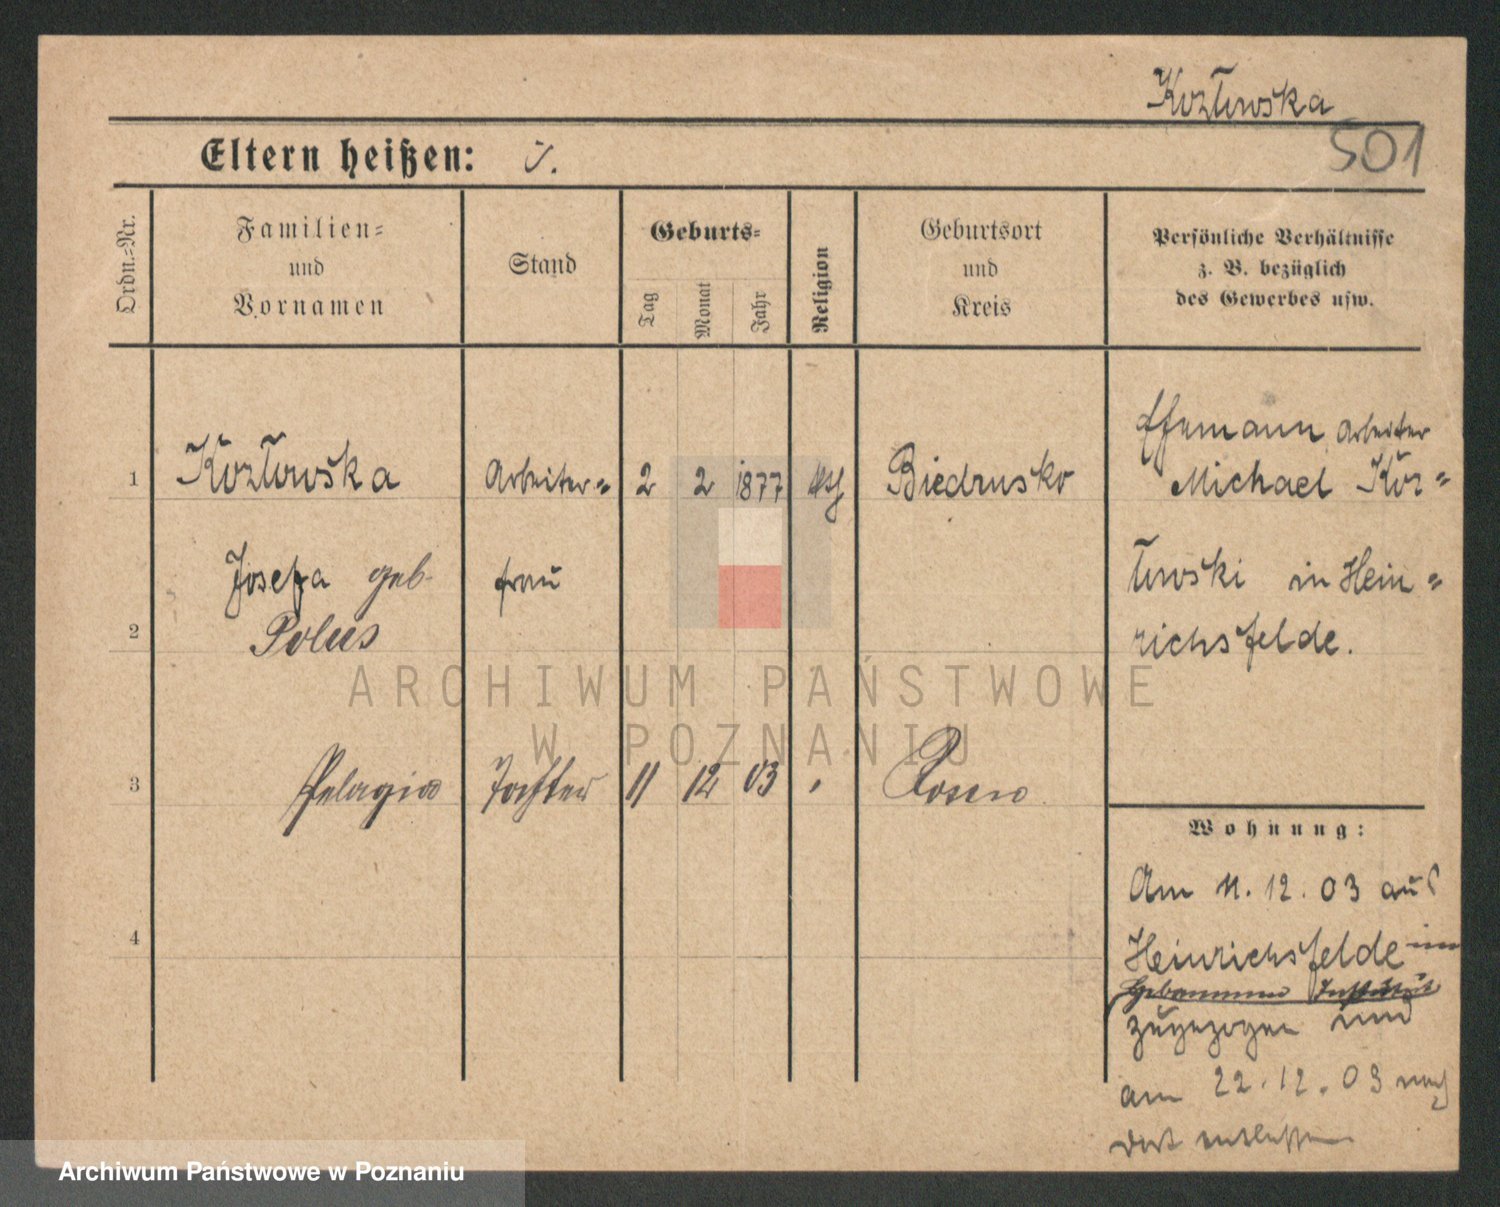 Kozłowska
501
Eltern heißen:
Ordn.=Nr.
Familien=
und
Vornamen
Stand
Geburts=
Tag
Monat
Jahr
Religion
Geburtsort
und
Kreis
Persönliche Verhältnisse
z. B. bezüglich
des Gewerbes usw.
1 Kozłowska Arbeiter= 2 2 1877 kth Biedrusko
Josefa geb. frau
2 Polus
3 Pelagia Tochter 11 12 03 " Posen
4
Ehemann Arbeiter
Michael Koz=
łowski in Hein=
richsfelde.
Wohnung:
Am 11. 12. 03 aus
Heinrichsfelde im
Hebammen Institut
zugezogen und
am 22. 12. 03 nach
dort entlassen
ARCHIWUM PAŃSTWOWE
W POZNANIU
Archiwum Państwowe w Poznaniu